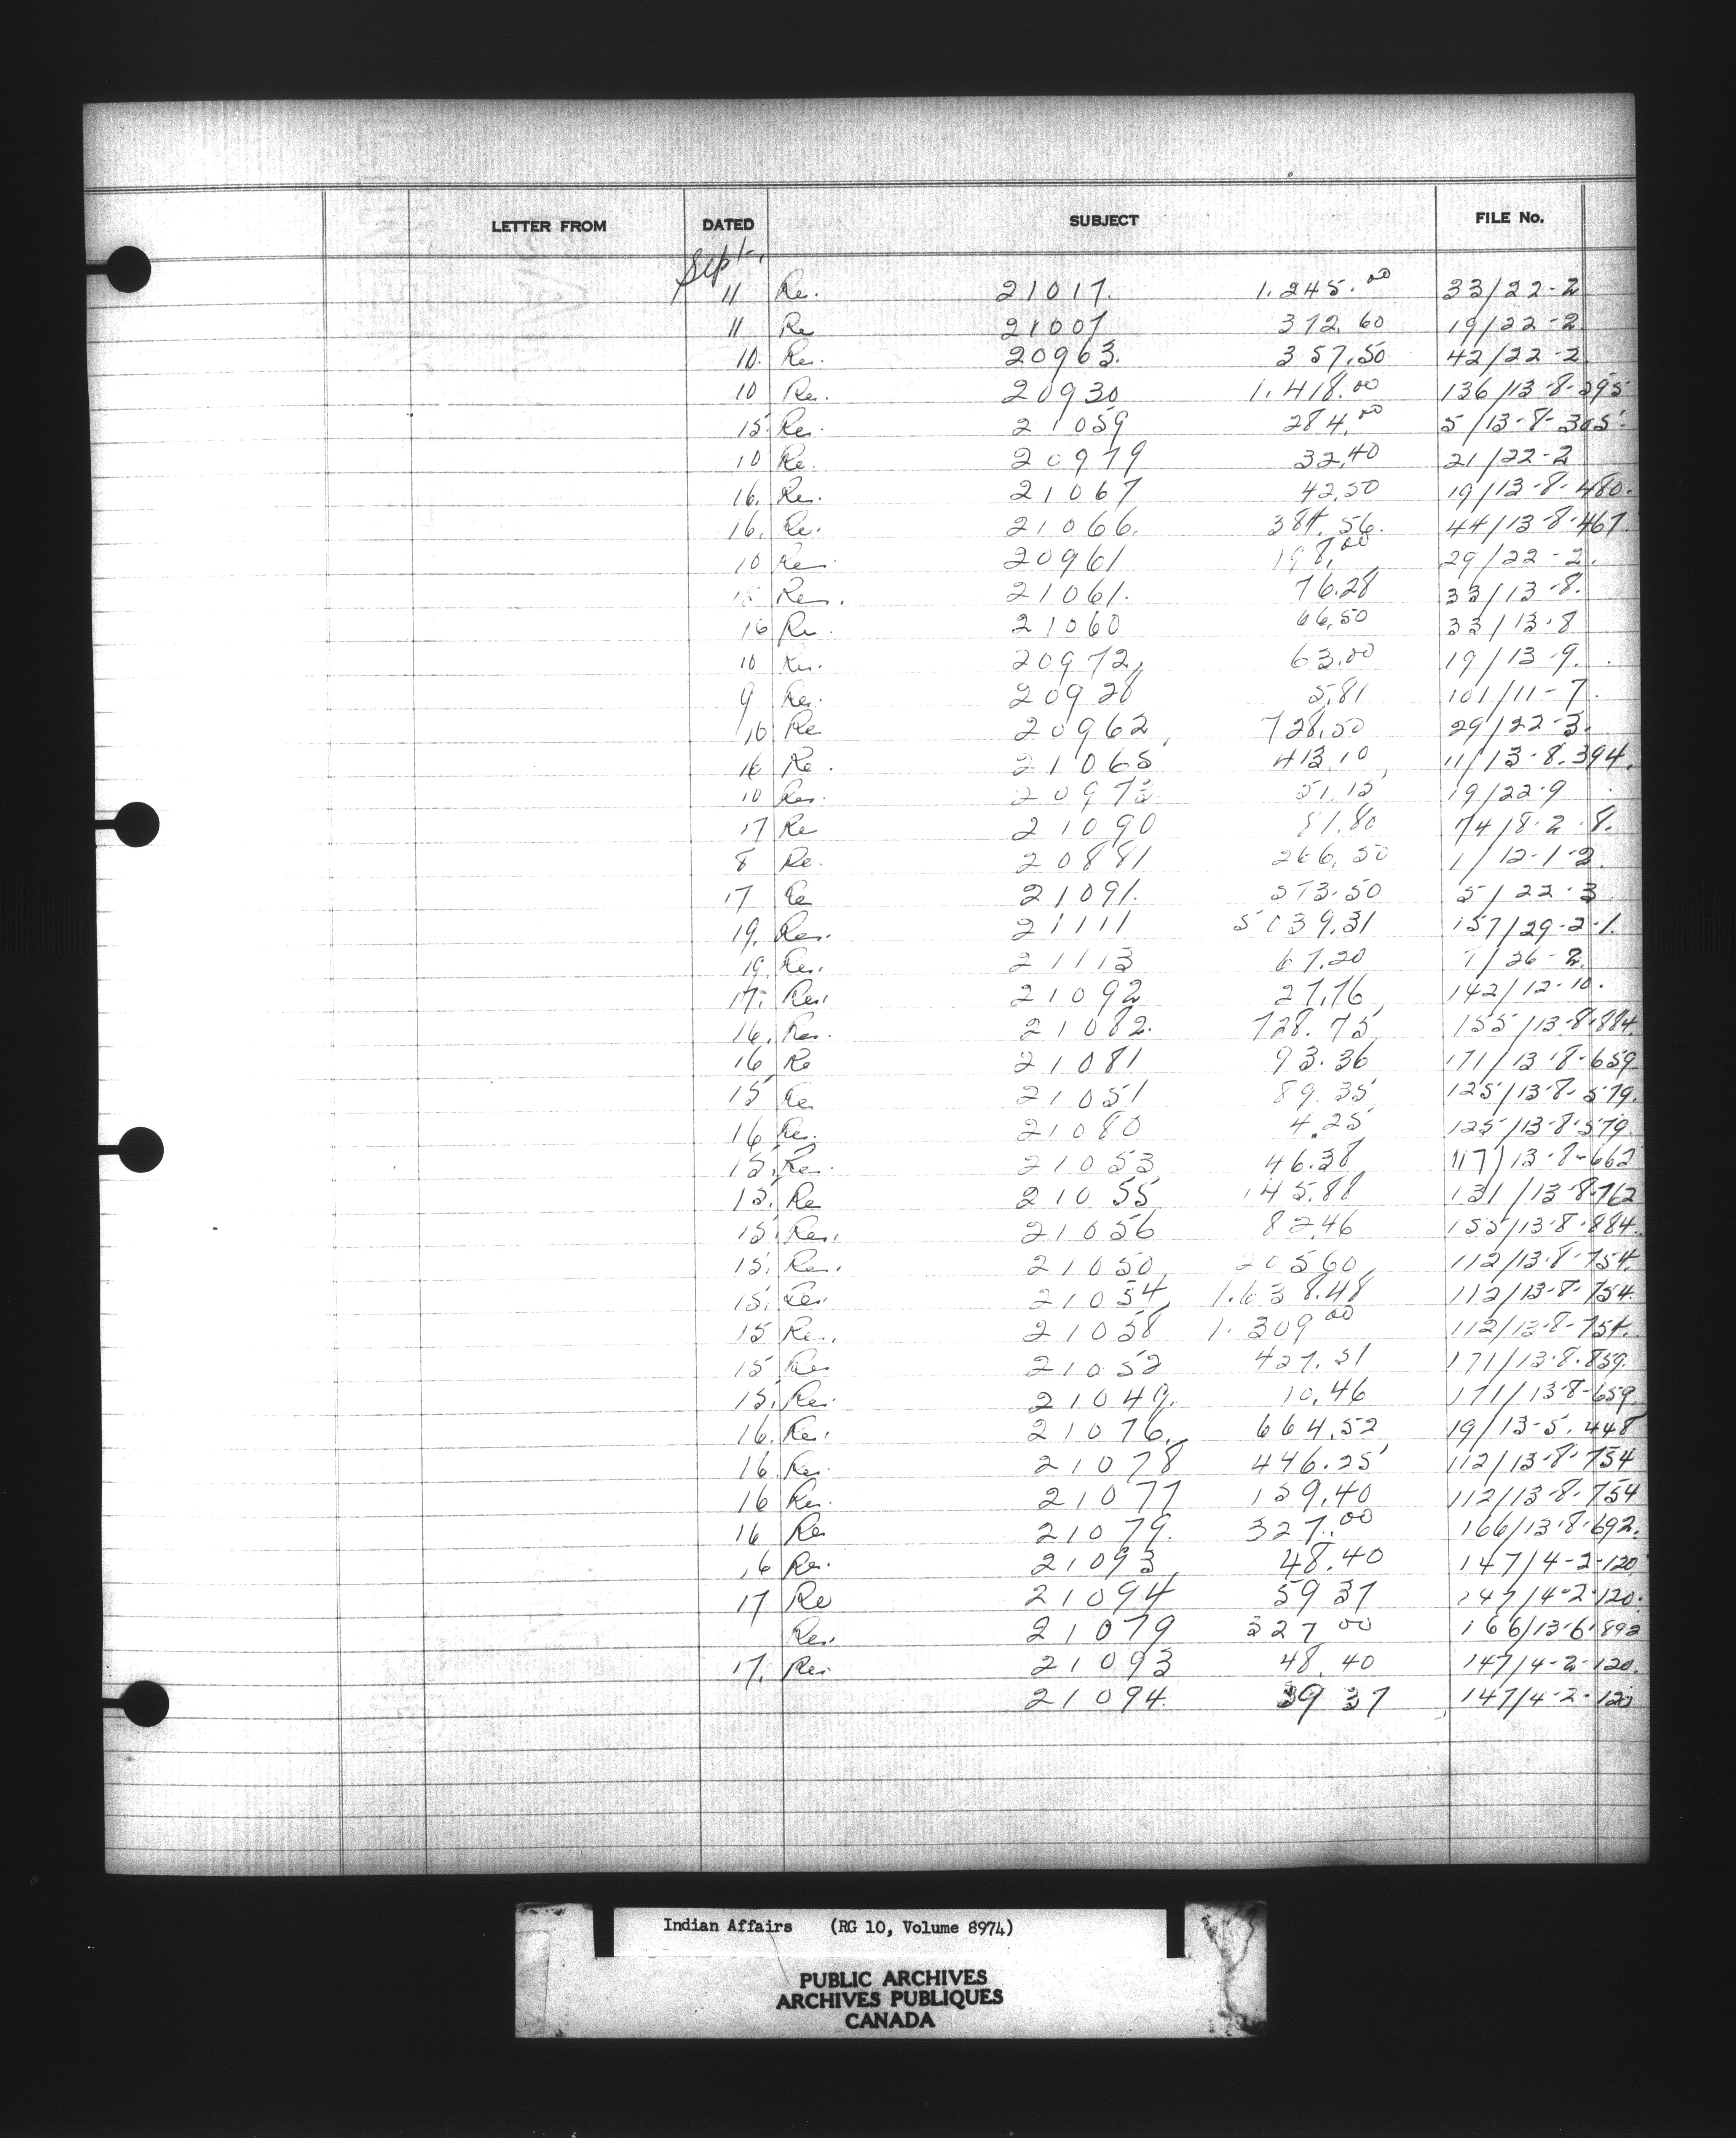 LETTER FROM DATED SUBJECT FILE No.
Sept.
11 Re. 21017. 1.245.00 33/22-2
11 Re 21007 372.60 19/22-2
10. Re. 20963. 357.50 42/22-2
10 Re. 20930 1.418.00 136/13-8-295
15. Re. 21059 284.00 5/13-8-305.
10 Re. 20979 32.40 21/22-2
16. Re. 21067 42.50 19/13-8-480.
16. Re. 21066. 384.56. 44/13-8-467
10 Re. 20961 198.00 29/22-2.
Re. 21061. 76.28 33/13-8.
16 Re. 21060 66.50 33/13-8
10 Re. 20972, 63.00 19/13-9.
9 Re. 20928 5.81 101/11-7.
10 Re 20962, 728.50 29/22-3.
16 Re. 21065 413.10 11/13-8.394.
10 Re. 20973 51.15 19/22-9
17 Re 21090 81.80 74/8-2-8.
8 Re. 20881 266.50 1/12-1-2.
17 Re 21091. 573.50 5/22-3
19. Re. 21111 5039.31 157/29-2-1.
19. Re. 21113 67.20 7/26-2.
17. Re. 21092 27.76 142/12-10.
16. Re. 21082. 728.75 155/13-8-884.
16 Re 21081 93.36 171/13-8-659
15 Re 21051 89.35 125/13-8-579.
16 Re. 21080 4.25 125/13-8-579.
15. Re. 21053 46.38 117/13-8-662
15. Re 21055 145.88 131/13-8-762
15. Re. 21056 82.46 155/13-8-884.
15. Re. 21050 205.60 112/13-8-754.
15. Re. 21054 1.638.48 112/13-8-754.
15 Re. 21058 1.309.00 112/13-8-754.
15 Re 21052 427.51 171/13-8-859.
15. Re. 21049. 10.46 171/13-8-659.
16. Re. 21076. 664.52 19/13-5.448
16 Re. 21078 446.25 112/13-8-754
16 Re. 21077 159.40 112/13-8-754
16 Re 21079. 327.00 166/13-8-692.
16 Re. 21093 48.40 147/4-2-120
17 Re 21094 59 37 147/4-2-120.
Re. 21079 327 00 166/13-6-892
17. Re. 21093 48.40 147/4-2-120.
21094. 39 37 147/4-2-120
Indian Affairs (RG 10, Volume 8974)
PUBLIC ARCHIVES
ARCHIVES PUBLIQUES
CANADA